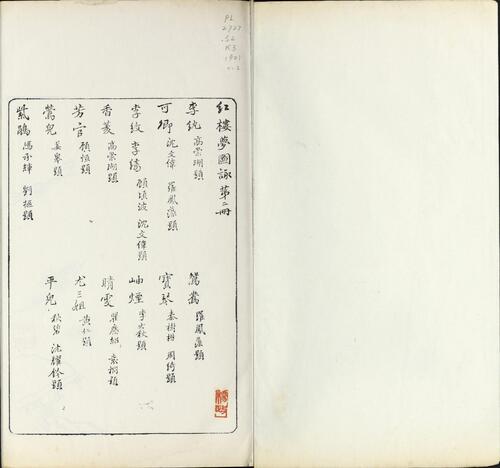 PL
2727
.S2
K3
1901
v.2
红樓夢圖詠第二冊
李紈 高崇瑚題
鴛鴦 羅鳳藻題
可卿 沈文偉 羅鳳藻題
寶琴 秦樹枏 周綺題
李紋 李綺 顧頃波 沈文偉題
岫煙 李光敘題
香菱 高崇瑚題
晴雯 瞿應紹 袁桐題
芳官 顧恒題
尤三姐 黃仁題
鶯兒 姜皋題
平兒 沈耀鈴題
紫鵑 馮承輝 劉樞題